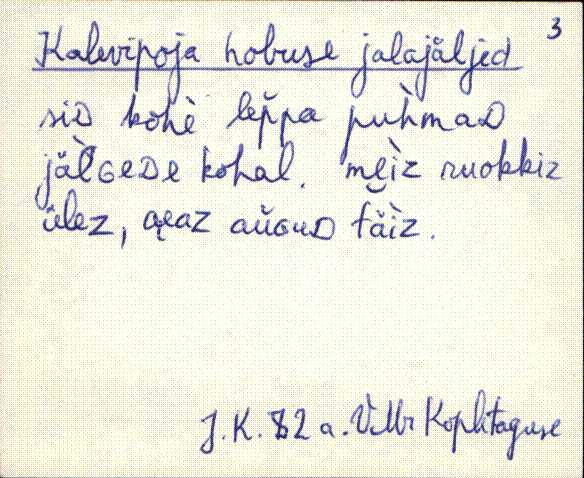 3
Kalevipoja hobuse jalajäljed
siᴅ kohè lep̆pa puh̀maᴅ
jäl̀ɢeᴅe kohal. mèiz ruokkiz
ülez, aeaz aŭɢuᴅ täìz.
J.K. 82 a. VMr Kophtaguse